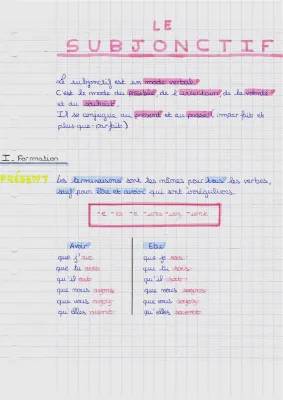 LE
SUBJONCTIF
Le subjonctif est un mode verbal.
C'est le mode du possible, de l'incertain, de la volonté
et du souhait.
Il se conjugue au présent et au passé (imparfait et
plus-que-parfait)
I- Formation
PRÉSENT
Les terminaisons sont les mêmes pour tous les verbes,
sauf pour être et avoir qui sont irréguliers.
-e -es -e -ions -iez -ent
Avoir
que j'aie
que tu aies
qu'il ait
que nous ayons
que vous ayez
qu'elles aient
Etre
que je sois
que tu sois
qu'il soit
que nous soyons
que vous soyez
qu'elles soient